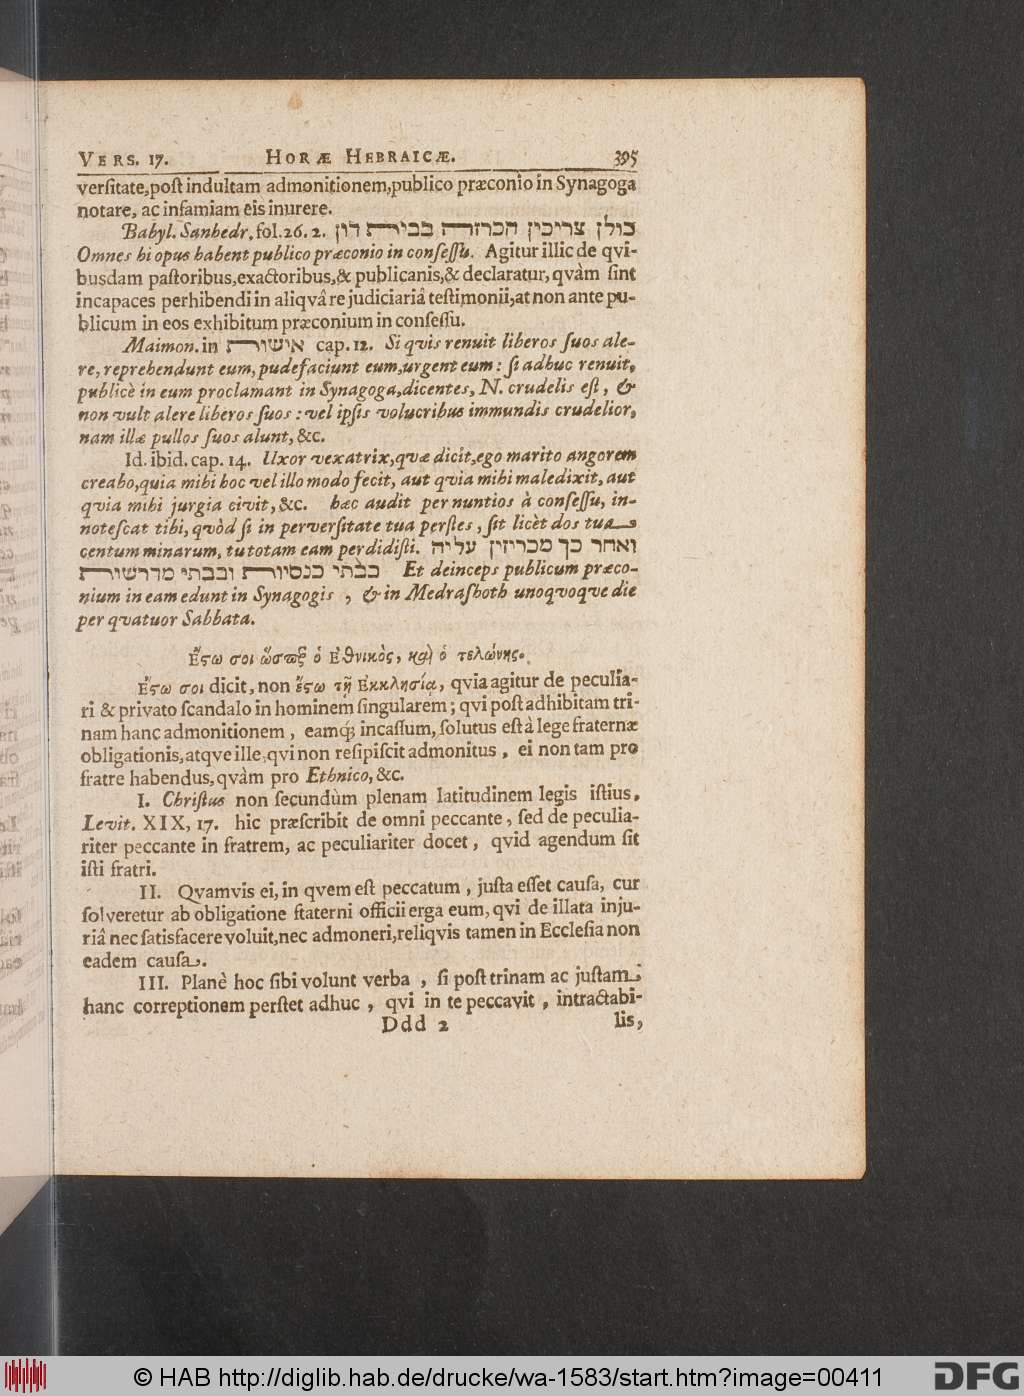 VERS. 17. HORÆ HEBRAICÆ. 395
verſitate, poſt indultam admonitionem, publico præconio in Synagoga
notare, ac infamiam eis inurere.
Babyl. Sanhedr. fol. 26. 2. כולן צריכין הכרזה בבית דון
Omnes hi opus habent publico præconio in conſeſſu. Agitur illic de qvi-
busdam paſtoribus, exactoribus, & publicanis, & declaratur, qvàm ſint
incapaces perhibendi in aliqvâ re judiciariâ teſtimonii, at non ante pu-
blicum in eos exhibitum præconium in conſeſſu.
Maimon. in אישות cap. 12. Si qvis renuit liberos ſuos ale-
re, reprehendunt eum, pudefaciunt eum, urgent eum : ſi adhuc renuit,
publicè in eum proclamant in Synagoga, dicentes, N. crudelis eſt, &
non vult alere liberos ſuos : vel ipſis volucribus immundis crudelior,
nam illæ pullos ſuos alunt, &c.
Id. ibid. cap. 14. Uxor vexatrix, qvæ dicit, ego marito angorem
creabo, quia mihi hoc vel illo modo fecit, aut qvia mihi maledixit, aut
qvia mihi jurgia civit, &c. hæc audit per nuntios à conſeſſu, in-
noteſcat tibi, qvòd ſi in perverſitate tua perſtes, ſit licèt dos tua
centum minarum, tu totam eam perdidiſti. ואחר כך מכריזין עליה
בבתי כנסיות ובבתי מדרשות Et deinceps publicum præco-
nium in eam edunt in Synagogis, & in Medraſhoth unoqvoqve die
per qvatuor Sabbata.
Ἔϛω σοι ὥσπερ ὁ Ἐθνικὸς, καὶ ὁ τελώνης.
Ἔϛω σοι dicit, non ἔϛω τῇ Ἐκκλησίᾳ, qvia agitur de peculia-
ri & privato ſcandalo in hominem ſingularem ; qvi poſt adhibitam tri-
nam hanc admonitionem, eamq; incaſſum, ſolutus eſt à lege fraternæ
obligationis, atqve ille, qvi non reſipiſcit admonitus, ei non tam pro
fratre habendus, qvàm pro Ethnico, &c.
I. Chriſtus non ſecundùm plenam latitudinem legis iſtius,
Levit. XIX, 17. hic præſcribit de omni peccante, ſed de peculia-
riter peccante in fratrem, ac peculiariter docet, qvid agendum ſit
iſti fratri.
II. Qvamvis ei, in qvem eſt peccatum, juſta eſſet cauſa, cur
ſolveretur ab obligatione ſtaterni officii erga eum, qvi de illata inju-
riâ nec ſatisfacere voluit, nec admoneri, reliqvis tamen in Eccleſia non
eadem cauſa.
III. Planè hoc ſibi volunt verba, ſi poſt trinam ac juſtam
hanc correptionem perſtet adhuc, qvi in te peccavit, intractabi-
Ddd 2 lis,
© HAB http://diglib.hab.de/drucke/wa-1583/start.htm?image=00411
DFG